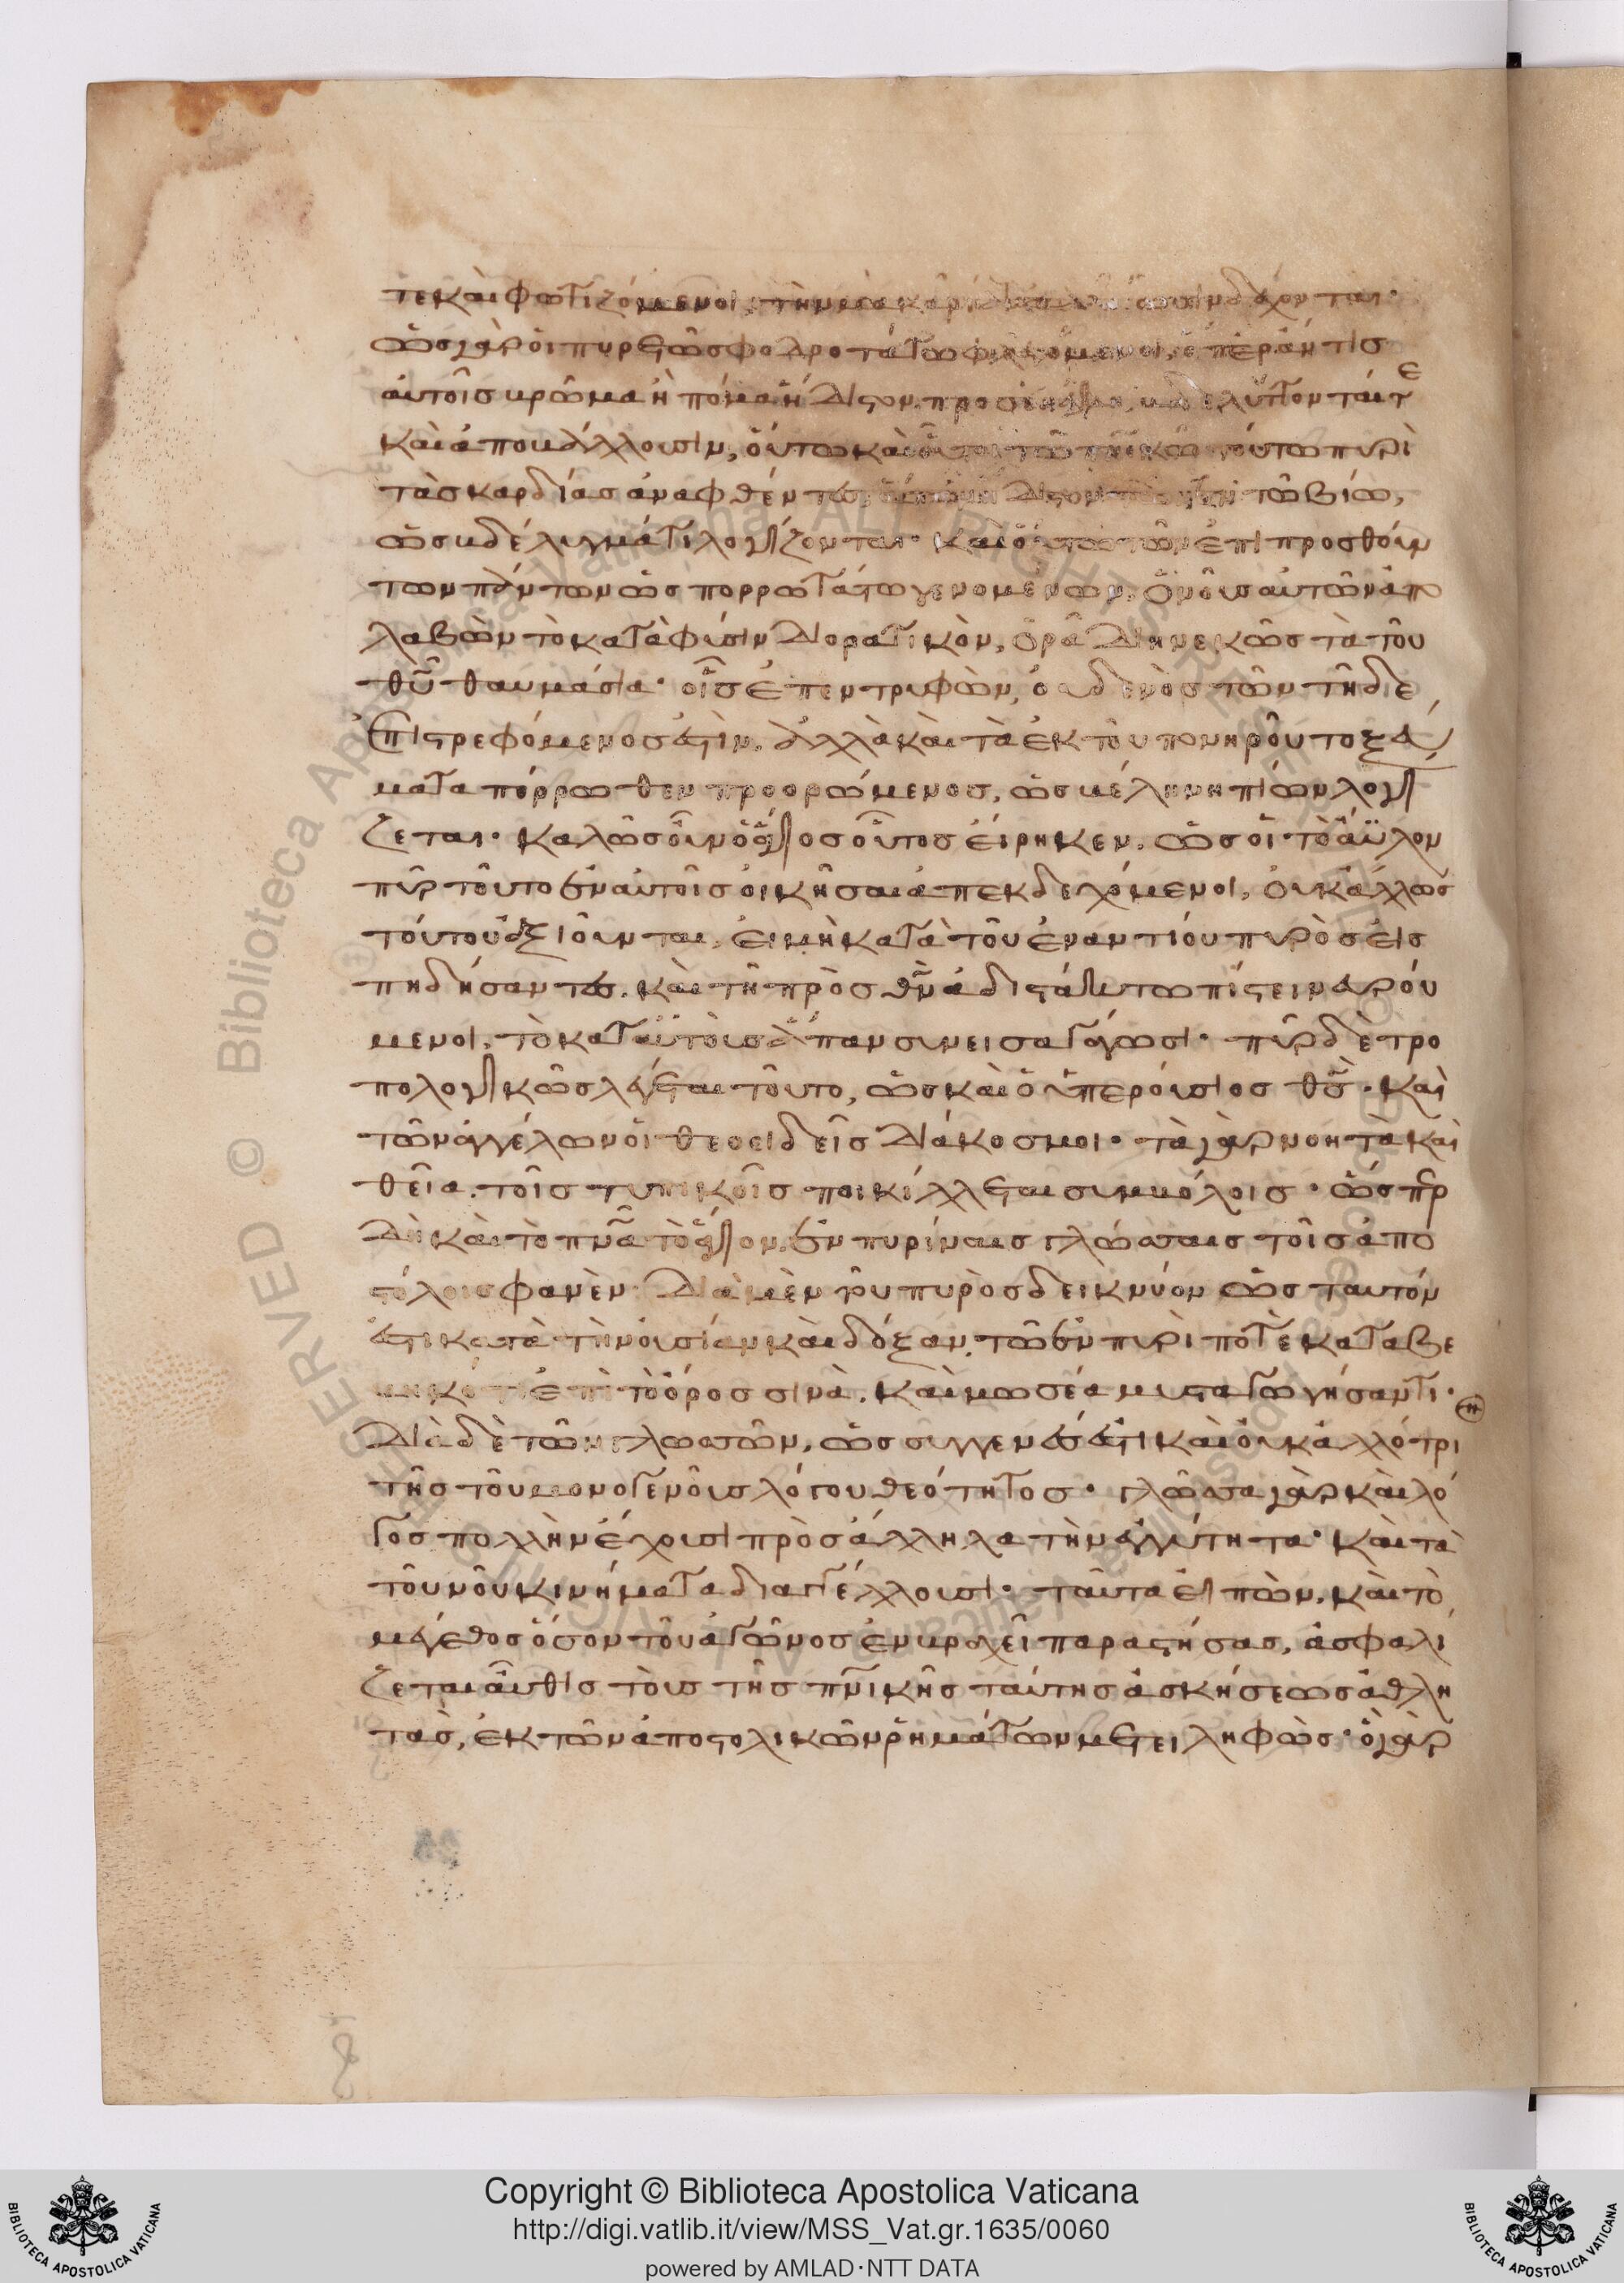 τε καὶ φωτιζόμενοι, τὴν
ὡς γὰρ οἱ πυρετῶ σφοδροτάτω φλεγόμενοι, ὅπερ ἄν τις
αὐτοῖς βρῶμα ἢ πόμα ἥδιστον προσενέγκη, βδελύττονταί τε
καὶ ἀποβάλλουσιν, οὕτω καὶ οὗτοι τῶ τοιούτω πυρὶ
τὰς καρδίας ἀναφθέντες, τῶ βίω,
ὡς βδέλυγμά τι λογίζονται· καὶ οὕτω τῶν ἐπιπροσθούν
των πάντων ὡς πορρωτάτω γενομένων, ὁ νοῦς αὐτῶν ἀπο
λαβὼν τὸ κατὰ φύσιν διορατικὸν, ὁρᾶ διηνεκῶς τὰ τοῦ
θῦ θαυμάσια· οἷς ἐπεντρυφῶν, οὐδενὸς τῶν τῆδε
ἐπιστρεφόμενός ἐστιν, ἀλλὰ καὶ τὰ ἐκ τοῦ πονηροῦ τοξεύ
ματα πόρρωθεν προορώμενος, ὡς βέλη νηπίων λογί
ζεται· καλῶς οὖν ὁ ἅγιος οὗτος εἴρηκεν, ὡς οἱ τὸ ἄϋλον
πῦρ τοῦτο ἐν αὐτοῖς οἰκῆσαι ἀπεκδεχόμενοι, οὐκ ἄλλως
τούτου ἀξιοῦνται, εἰ μὴ κατὰ τοῦ ἐναντίου πυρὸς εἰσ
πηδήσαντες, καὶ τῆ πρὸς θν ἀδιστάκτω πίστει ναρού
μενοι, τὸ κατ' αὐτοὺς ἅπαν συνεισαγάγωσι· πῦρ δὲ τρο
πολογικῶς λέγεται τοῦτο, ὡς καὶ ὁ ὑπερούσιος θς· καὶ
τῶν ἀγγέλων οἱ θεοειδεῖς διάκοσμοι· τὰ γὰρ νοητὰ καὶ
θεῖα, τοῖς τυπικοῖς ποικίλλεται συμβόλοις· ὥσπερ
δὴ καὶ τὸ πνα τὸ ἅγιον, ἐν πυρίναις γλώσσαις τοῖς ἀπο
στόλοις φανὲν· διὰ μὲν τοῦ πυρὸς δεικνύον ὡς ταυτόν
ἐστι κατὰ τὴν οὐσίαν καὶ δόξαν, τῶ ἐν πυρί ποτε καταβε
βηκότι ἐπὶ τὸ ὄρος σινὰ, καὶ μωσέα μυσταγωγήσαντι·
διὰ δὲ τῶν γλωσσῶν, ὡς συγγενές ἐστι καὶ οὐκ ἀλλότρι
τῆς τοῦ μονογενοῦς λόγου θεότητος· γλῶσσα γὰρ καὶ λό
γος πολλὴν ἔχουσι πρὸς ἄλληλα τὴν ἐγγύτητα· καὶ τὰ
τοῦ νοῦ κινήματα διαγγέλλουσι· ταῦτα εἰπὼν, καὶ τὸ
μέγεθος ὅσον τοῦ ἀγῶνος ἐν βραχεῖ παραστήσας, ἀσφαλί
ζεται αὖθις τοὺς τῆς πνικῆς ταύτης ἀσκήσεως ἀθλη
τὰς, ἐκ τῶν ἀποστολικῶν ῥημάτων μετειληφώς· ὁ γὰρ
Copyright © Biblioteca Apostolica Vaticana
http://digi.vatlib.it/view/MSS_Vat.gr.1635/0060
powered by AMLAD·NTT DATA